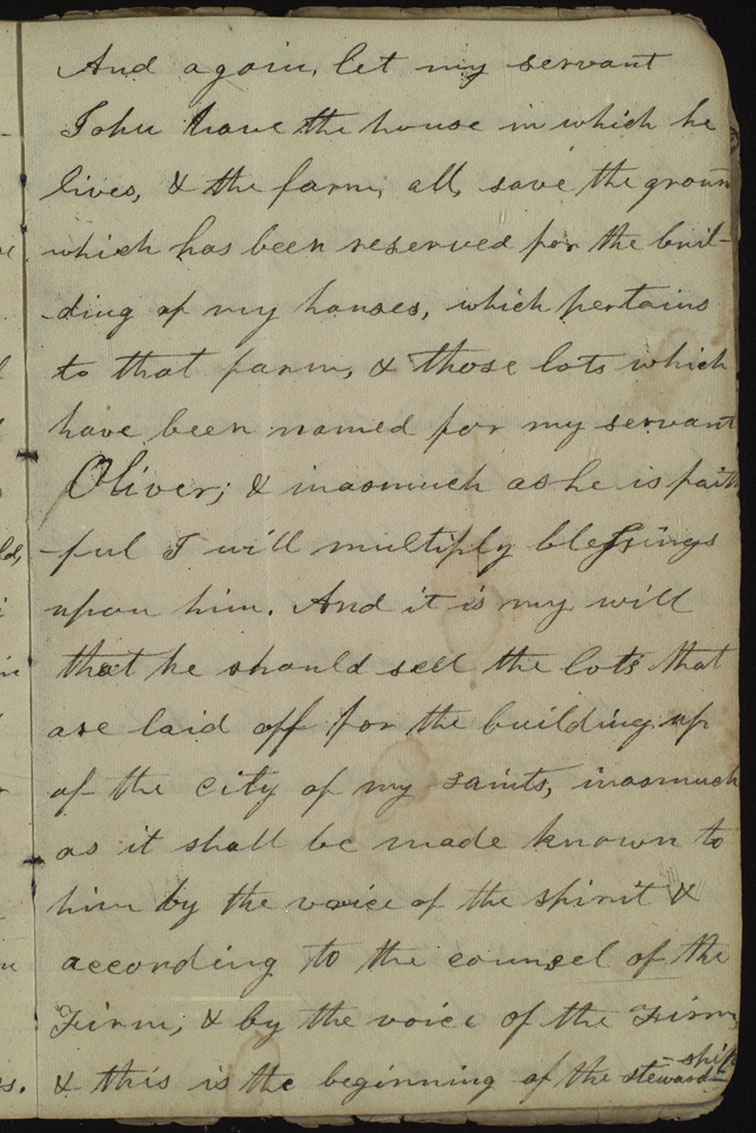 And again, let my servant
John have the house in which he
lives, & the farm, all, save the groun
which has been reserved for the buil-
-ding of my houses, which pertains
to that farm, & those lots which
have been named for my servant
Oliver; & inasmuch as he is faith
-ful I will multiply blessings
upon him. And it is my will
that he should sell the lots that
are laid off for the building up
of the city of my saints, inasmuch
as it shall be made known to
him by the voice of the spirit &
according to the counsel of the
Firm, & by the voice of the Firm,
& this is the beginning of the steward-ship